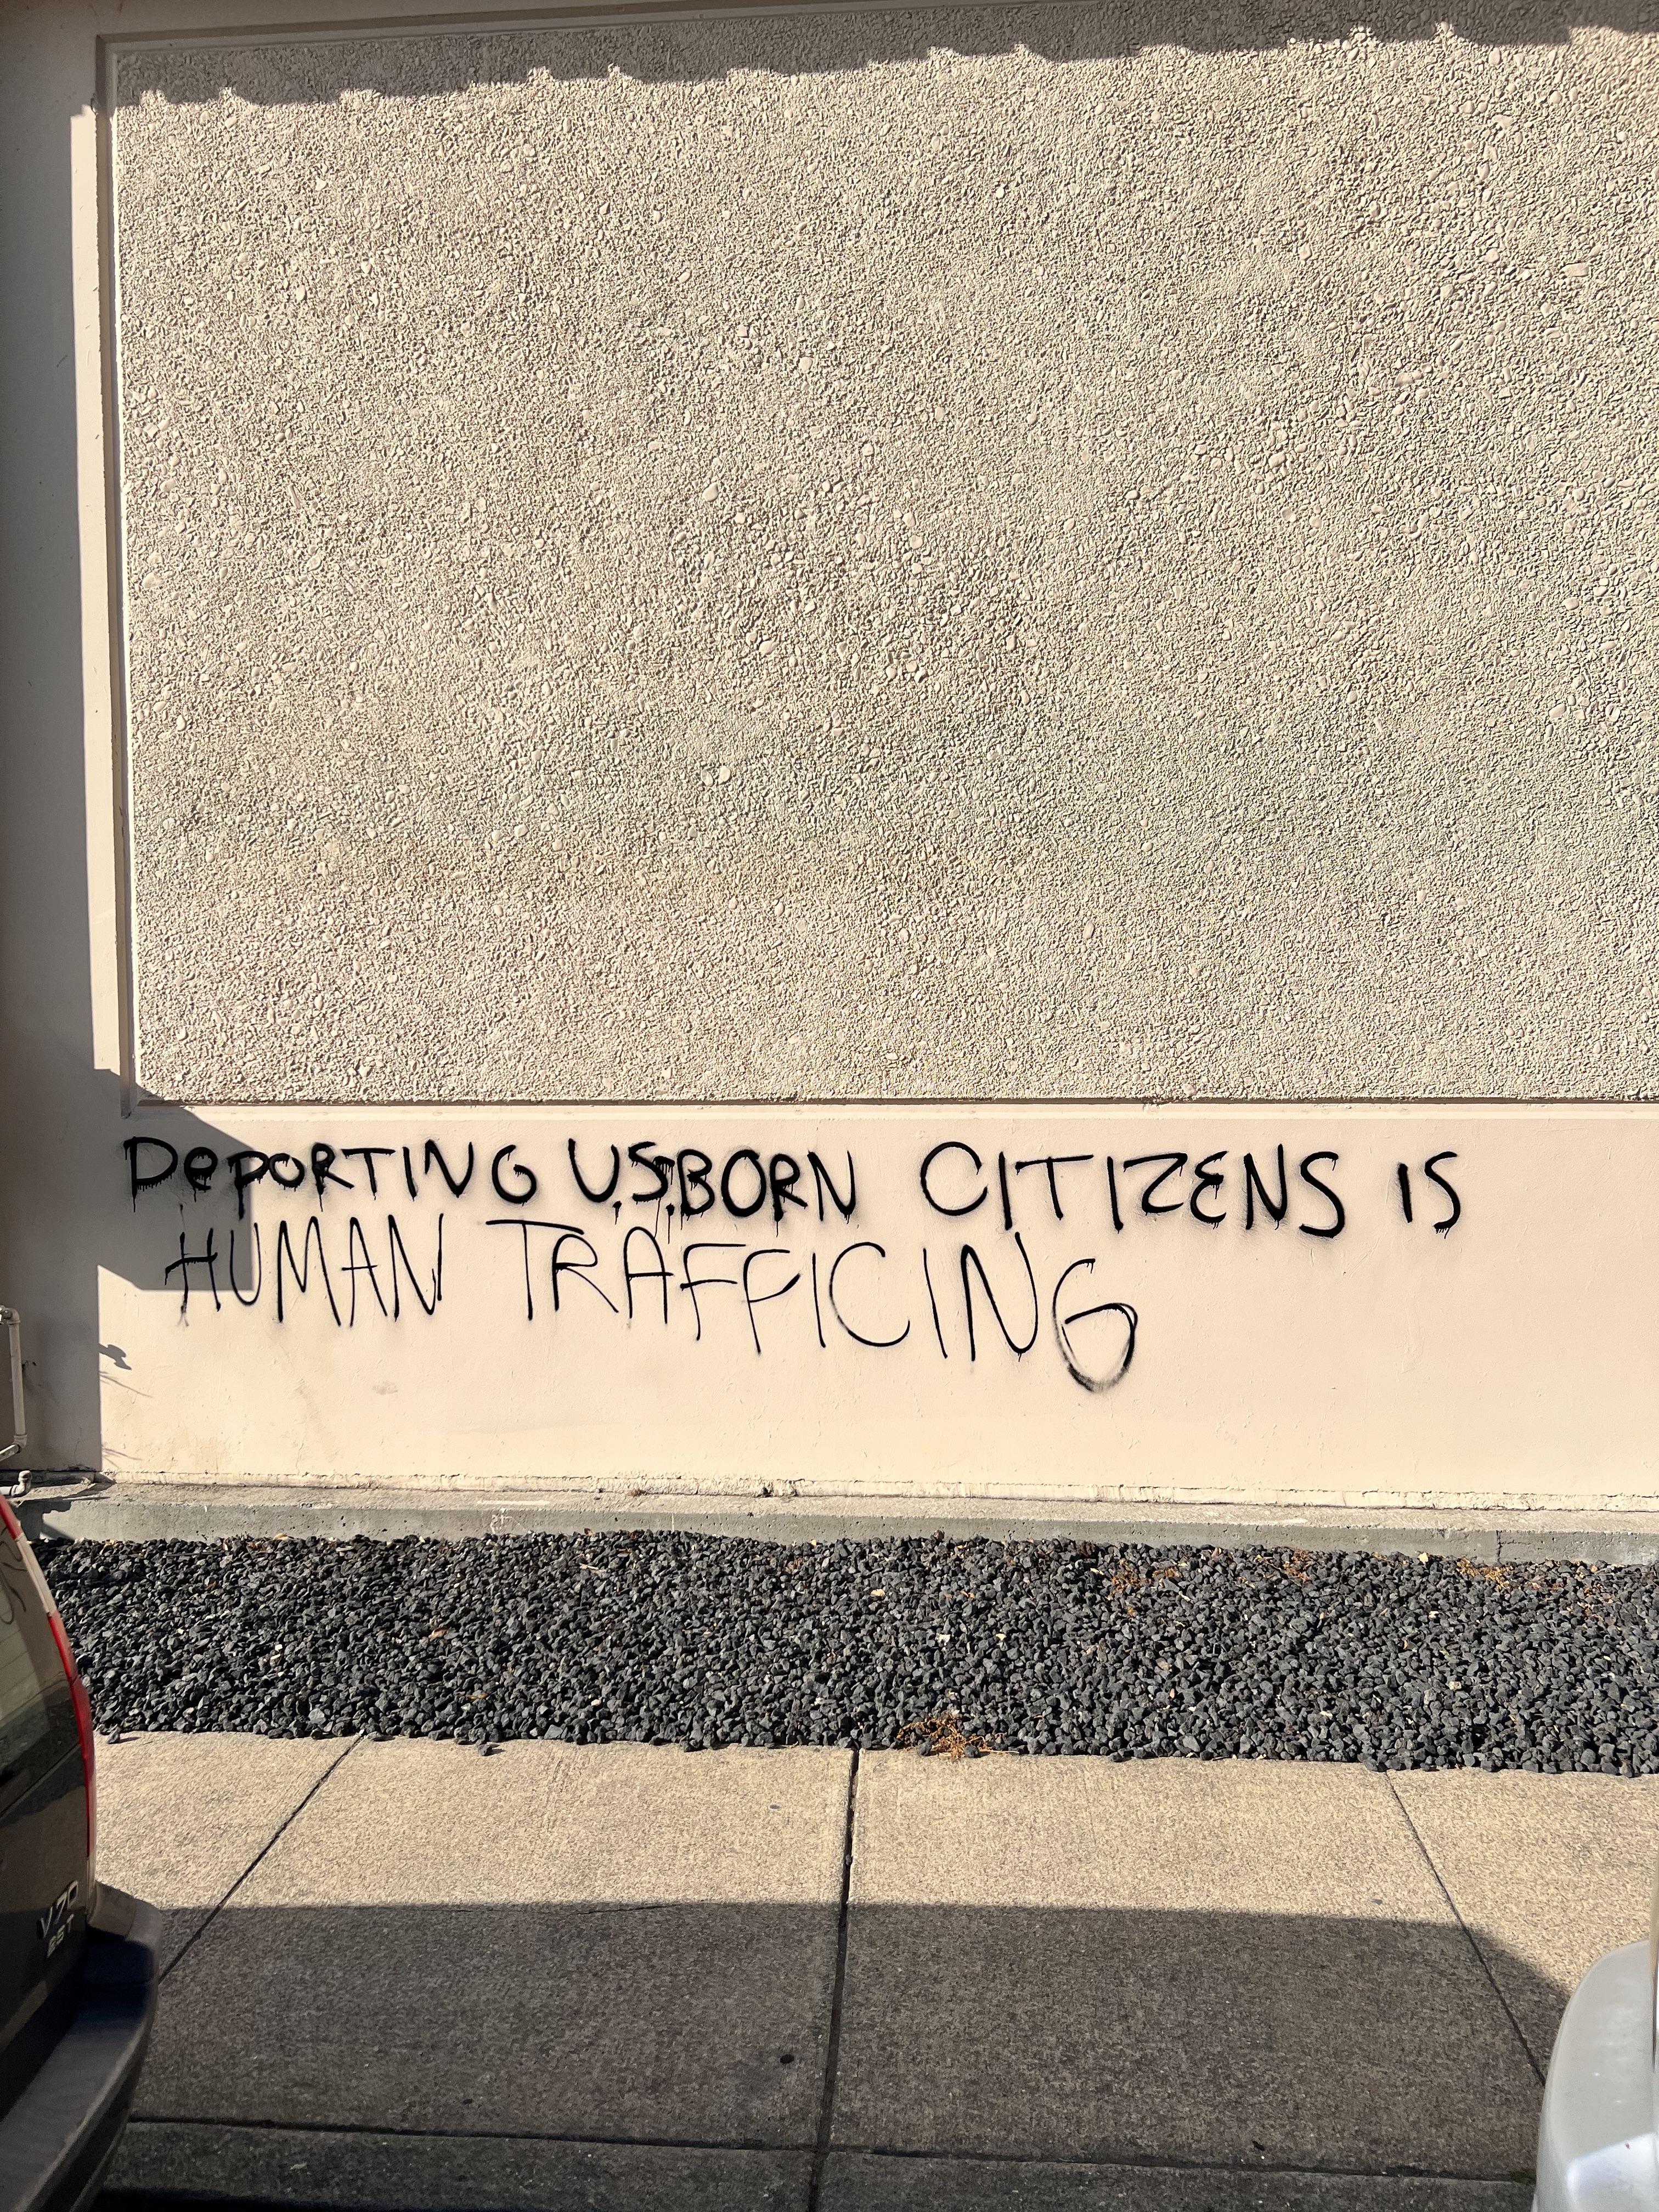 DePORTING U.S. BORN CITIZENS IS
HUMAN TRAFFICING
V70